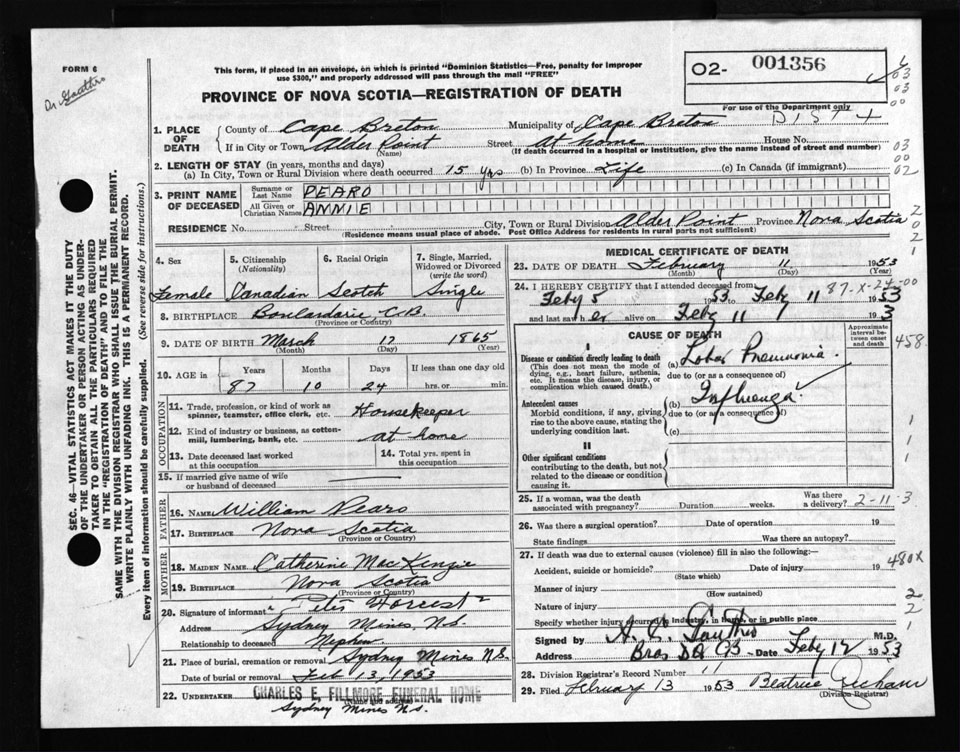 FORM 6
Dr Gauthro
This form, if placed in an envelope, on which is printed "Dominion Statistics—Free, penalty for improper
use $300," and properly addressed will pass through the mail "FREE"
PROVINCE OF NOVA SCOTIA—REGISTRATION OF DEATH
O2- 001356
For use of the Department only
DIST 4
1. PLACE OF DEATH
County of Cape Breton Municipality of Cape Breton
If in City or Town Alder Point Street At home House No.
(Name) (If death occurred in a hospital or institution, give the name instead of street and number)
2. LENGTH OF STAY (in years, months and days)
(a) In City, Town or Rural Division where death occurred 15 yrs (b) In Province Life (c) In Canada (if immigrant)
3. PRINT NAME OF DECEASED
Surname or Last Name DEARO
All Given or Christian Names ANNIE
RESIDENCE No. Street City, Town or Rural Division Alder Point Province Nova Scotia
(Residence means usual place of abode. Post Office Address for residents in rural parts not sufficient)
4. Sex
Female
5. Citizenship
(Nationality)
Canadian
6. Racial Origin
Scotch
7. Single, Married, Widowed or Divorced
(write the word)
Single
8. BIRTHPLACE Boulardarie C.B.
(Province or Country)
9. DATE OF BIRTH March 17 1865
(Month) (Day) (Year)
10. AGE in Years Months Days If less than one day old
87 10 24 hrs. or min.
OCCUPATION
11. Trade, profession, or kind of work as
spinner, teamster, office clerk, etc. Housekeeper
12. Kind of industry or business, as cotton-
mill, lumbering, bank, etc. at home
13. Date deceased last worked
at this occupation
14. Total yrs. spent in
this occupation
15. If married give name of wife
or husband of deceased
FATHER
16. NAME William Dearo
17. BIRTHPLACE Nova Scotia
(Province or Country)
MOTHER
18. MAIDEN NAME Catherine MacKenzie
19. BIRTHPLACE Nova Scotia
(Province or Country)
20. Signature of informant "Peter Forrest"
Address Sydney Mines, N.S.
Relationship to deceased Nephew
21. Place of burial, cremation or removal Sydney Mines N.S.
Date of burial or removal Feb 13, 1953
22. UNDERTAKER CHARLES E. FILLMORE FUNERAL HOME
(Name and address)
Sydney Mines N.S.
MEDICAL CERTIFICATE OF DEATH
23. DATE OF DEATH February 11 1953
(Month) (Day) (Year)
24. I HEREBY CERTIFY that I attended deceased from 87-X-24-00
Feby 5 1953 to Feby 11 1953
and last saw her alive on Feby 11 1953
CAUSE OF DEATH
Approximate interval between onset and death
I
Disease or condition directly leading to death
(This does not mean the mode of
dying, e.g., heart failure, asthenia,
etc. It means the disease, injury, or
complication which caused death.)
(a) Lobar Pneumonia
due to (or as a consequence of)
Antecedent causes
Morbid conditions, if any, giving
rise to the above cause, stating the
underlying condition last.
(b) Influenza
due to (or as a consequence of)
(c)
II
Other significant conditions
contributing to the death, but not
related to the disease or condition
causing it.
25. If a woman, was the death
associated with pregnancy? Duration weeks. Was there a delivery? 2-11-3
26. Was there a surgical operation? Date of operation 19
State findings Was there an autopsy?
27. If death was due to external causes (violence) fill in also the following:
Accident, suicide or homicide? Date of injury 19
(State which)
Manner of injury
(How sustained)
Nature of injury
Specify whether injury occurred in industry, in home, or in public place
Signed by A. C. Gauthro M.D.
Address Bras D'Or CB Date Feby 12 1953
28. Division Registrar's Record Number
29. Filed February 13 1953 Beatrice
(Division Registrar)
458
480X
SEC. 46—VITAL STATISTICS ACT MAKES IT THE DUTY
OF THE UNDERTAKER OR PERSON ACTING AS UNDER-
TAKER TO OBTAIN ALL THE PARTICULARS REQUIRED
IN THE "REGISTRATION OF DEATH" AND TO FILE THE
SAME WITH THE DIVISION REGISTRAR WHO SHALL ISSUE THE BURIAL PERMIT.
WRITE PLAINLY WITH UNFADING INK. THIS IS A PERMANENT RECORD.
Every item of information should be carefully supplied. (See reverse side for instructions.)